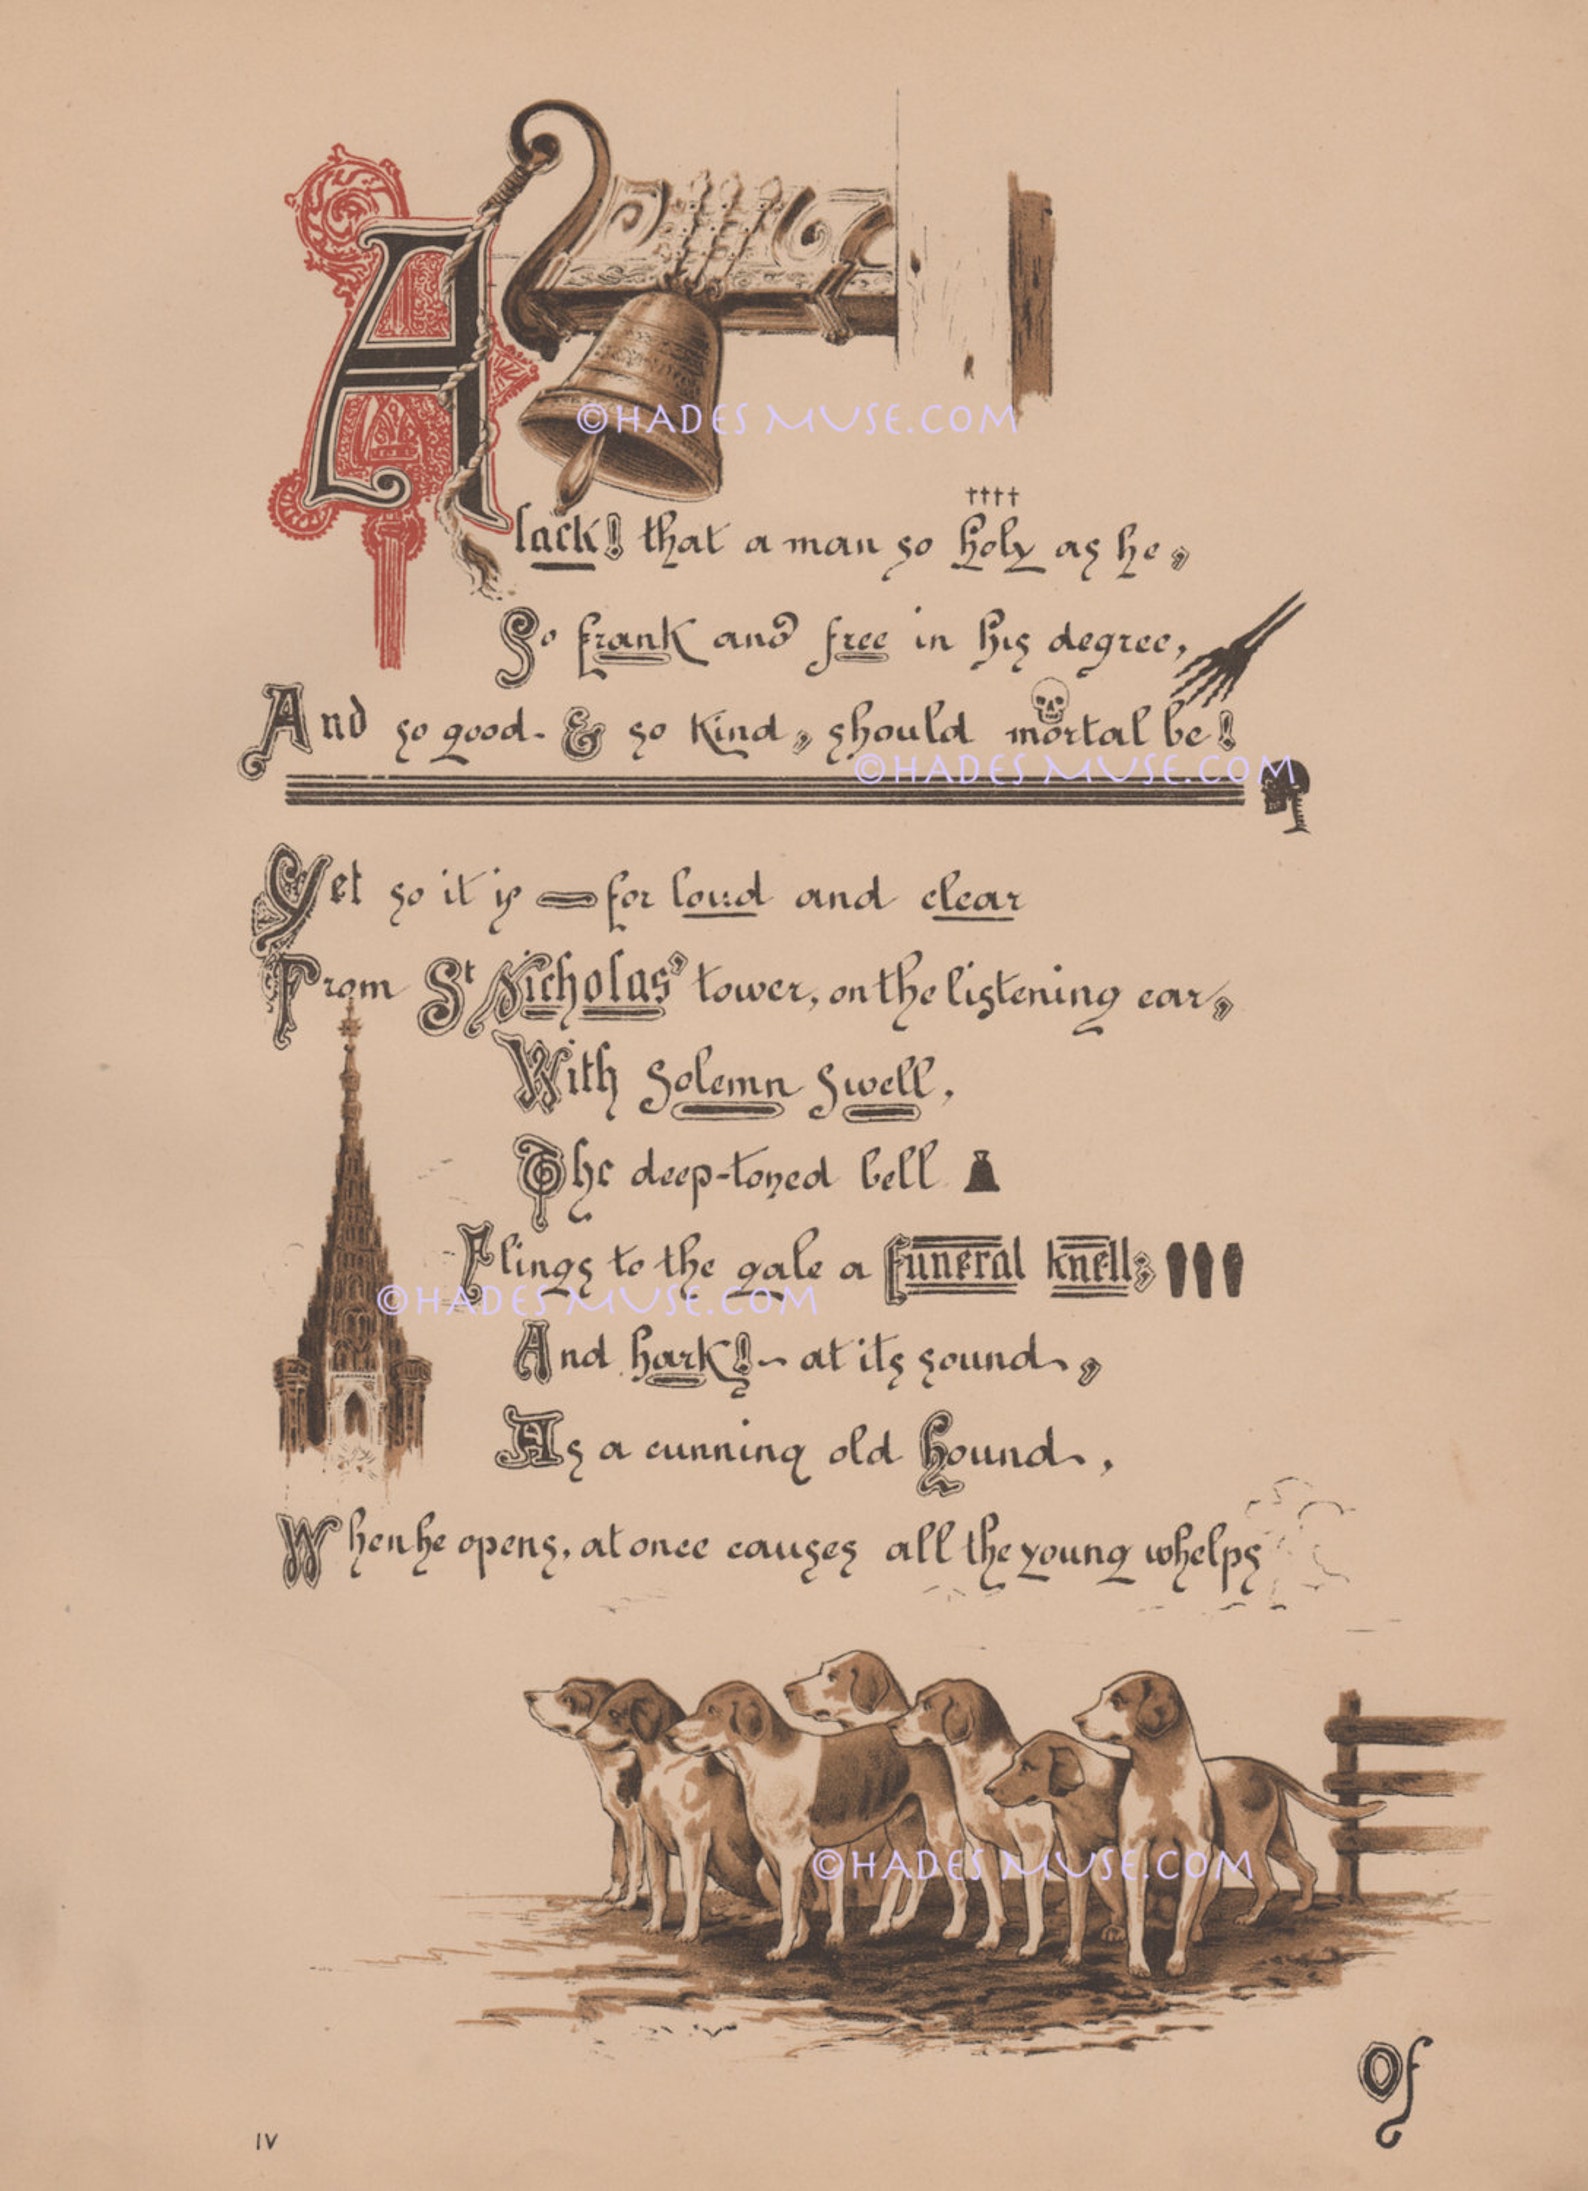 ©HADES MUSE.COM
Alack! that a man so holy as he,
So frank and free in his degree,
And so good - & so kind, should mortal be!
©HADES MUSE.COM
Yet so it is — for loud and clear
From St Nicholas' tower, on the listening ear,
With solemn swell,
The deep-toned bell
Flings to the gale a funeral knell;
©HADES MUSE.COM
And hark! - at its sound,
As a cunning old hound,
When he opens, at once causes all the young whelps
©HADES MUSE.COM
Of
IV